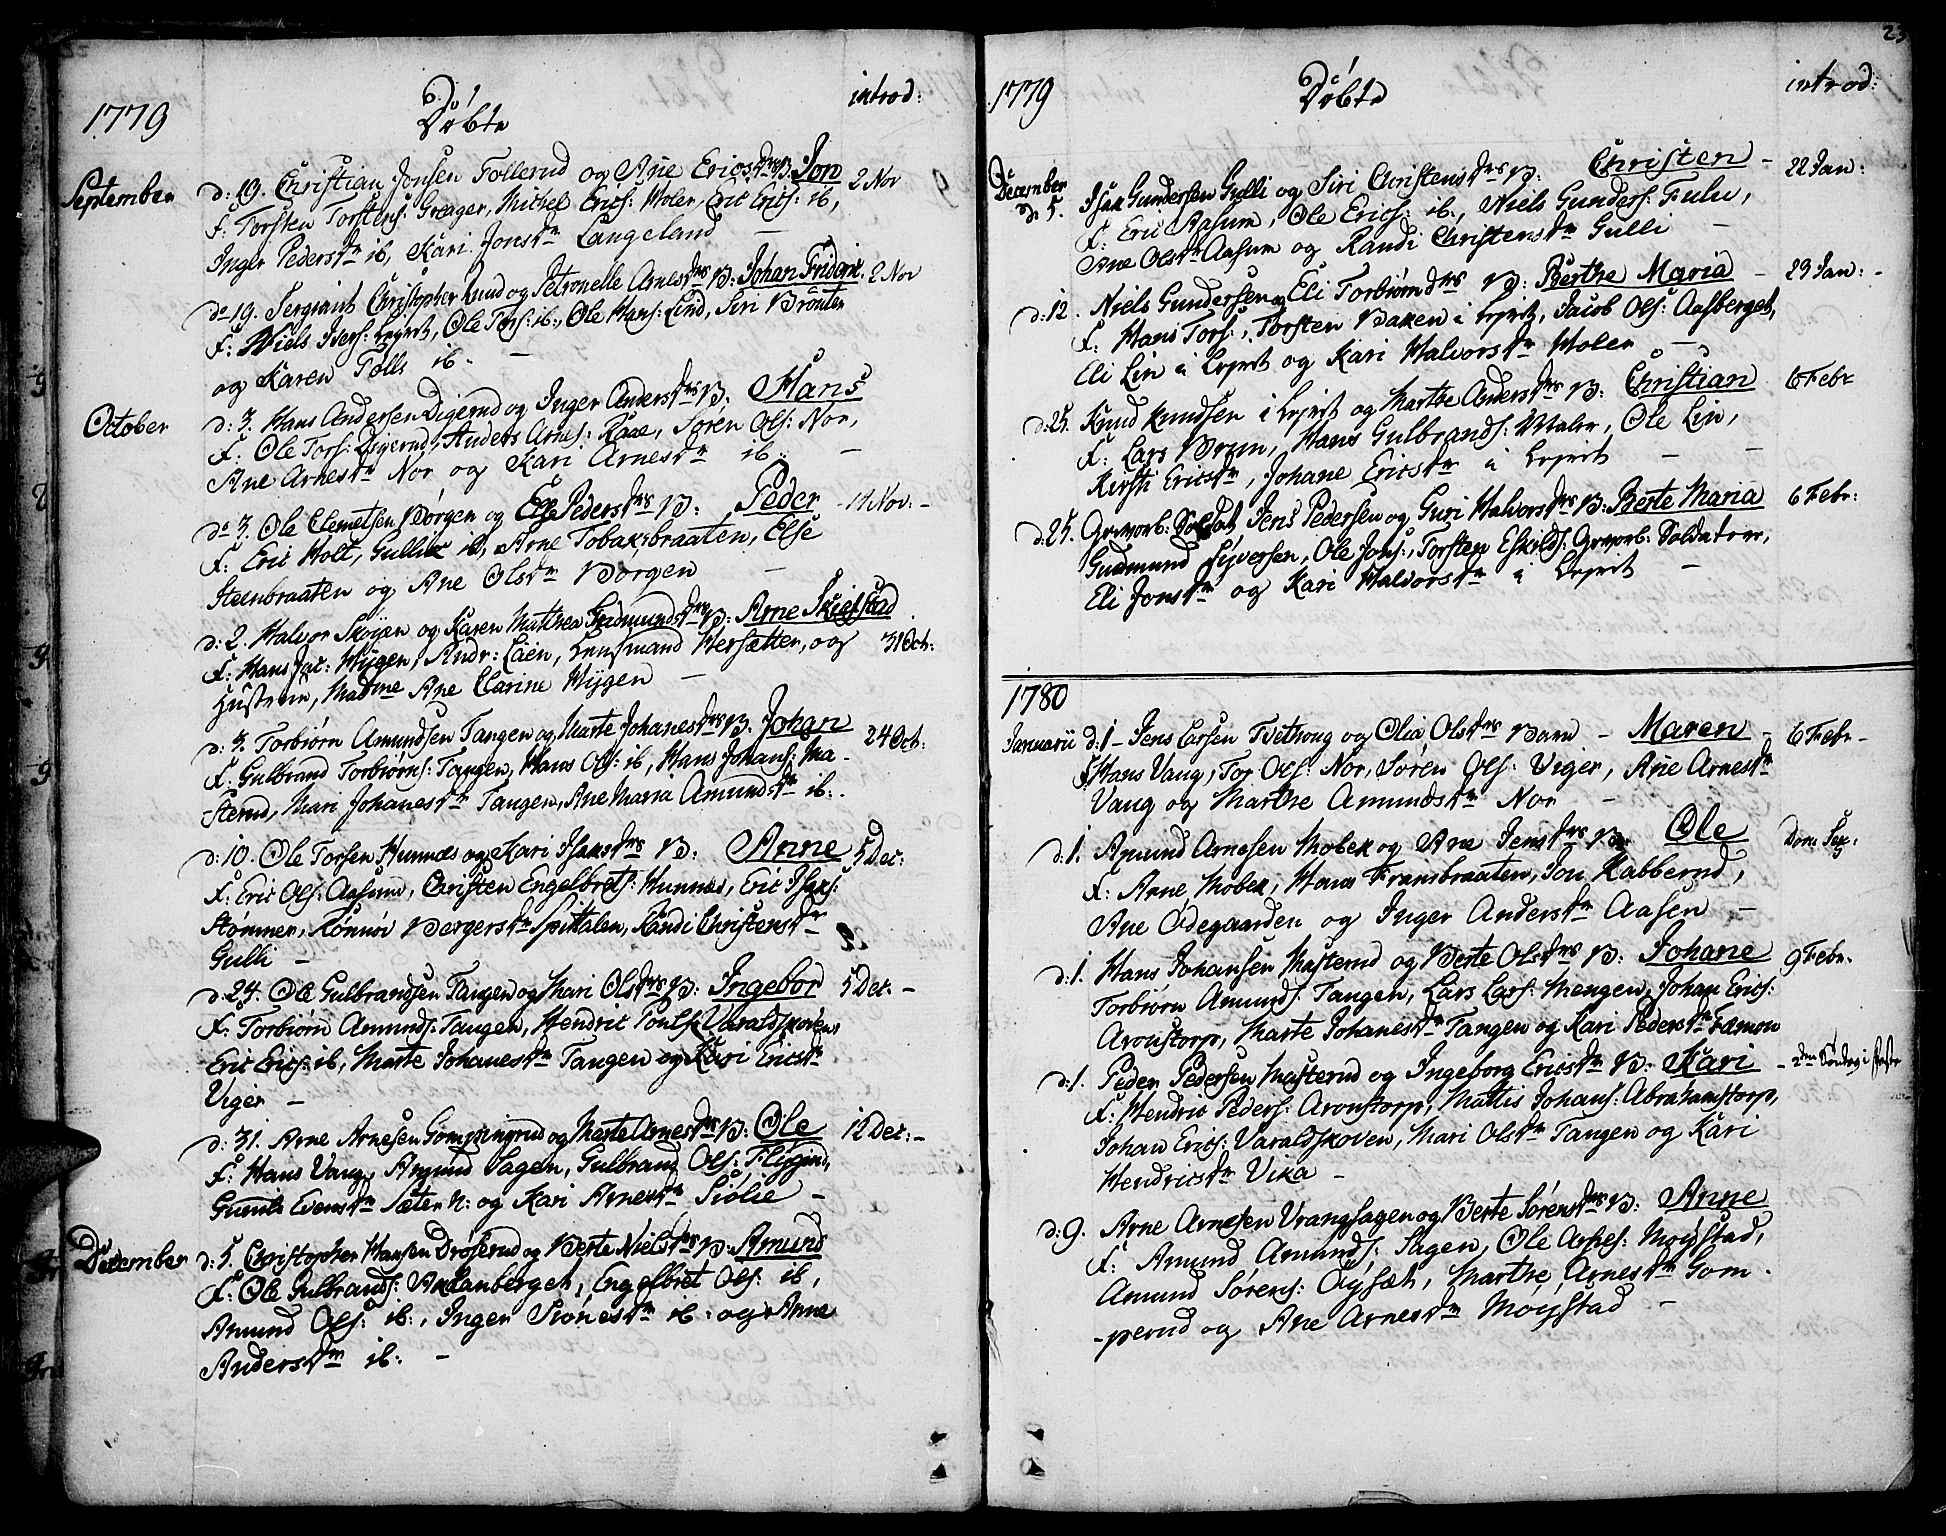 1779
Döbte
introd:
September
d: 19. Christian Jonsen Follerud og Ane Ericsdrs B. Jon
2 Nov
F. Torsten Torstens: Greager, Michel Erics: Holer, Eric Erics: ib,
Inger Pedersdr ib, Kari Jonsdr Langeland —
d= 19. Sergiant Christopher Lund og Petronelle Arnesdrs B: Johan Frideric.
2 Nov
F: Niels Ivers: Lejret, Ole Tors: ib:, Ole Hans: Lind, Siri Bröuten
og Karen Tolls ib. —
October
d: 3. Hans Andersen Digerud og Inger Andersdrs B: Hans
F. Ole Tors: Digerud, Anders Arnes: Raae, Sören Ols: Nor,
Ane Arnesdr Nor og Kari Arnesdr ib. —
d= 3. Ole Clemetsen Borgen og Else Pedersdrs B: Peder
14 Nov: -
F: Eric Holt, Gullik ib, Arne Tobaksbraaten, Else
Steenbraaten og Ane Olsdr Borgen —
d: 2. Halvor Skøyen og Karen Mathea Gudmundsdrs B: Arne Skiefstad
F: Hans Jac: Wÿgen, Andr: Laen, Lensmand Hersætter, og
31 Oct:
Hustrue, Madme Ane Clarine Wÿgen —
d: 3. Torbiørn Amundsen Tangen og Marte Johanesdrs B. Johan
24 Oct:
F. Gulbrand Torbiørns: Tangen, Hans Ols: ib, Hans Johans: Ma-
-sterud, Mari Johanesdr Tangen, Ane Maria Amundsdr ib:.
d: 10. Ole Torsen Hunnæs og Kari Isaksdrs B: Anne
5 Dec:
F: Eric Ols: Aasum, Christen Engelbrets: Hunnæs, Eric Isaks:
Stømmer, Rønnov Borgersdr Spittalen, Randi Christensdr
Gulli —
d: 24. Ole Gulbrandsen Tangen og Mari Olsdrs B: Ingebor
5 Dec. -
F. Torbiørn Amunds: Tangen, Hendric Pouls: Varaldskoven
Eric Erics: ib, Marte Johanesdr Tangen og Kari Ericsdr
Viger —
d: 31. Arne Arnesen Gomperud og Marte Arnesdrs B: Ole
12 Dec: -
F. Hans Vang, Amund Sagen, Gulbrand Ols: Flÿgind,
Evensdr Sæter N: og Kari Arnesdr Siölie —
December
d: 5. Christopher Hansen Drøserud og Berte Nielsdrs B: Amund
F. Ole Gulbrands: Anlanberget, Engelbret Ols: ib,
Amund Ols: ib:, Inger Simonesdr ib: og Anne
Andersdr ib: —
23
1779
Döbte
introd:
December
d: 5. Isak Gundersen Gulli og Siri Christensdrs B: Christen -
22 Jan:
F: Eric Aasum, Ole Erics: ib:, Niels Gunders: Fulu,
Ane Olsdr Aasum og Randi Christensdr Gulli —
d: 12. Niels Gundersen og Eli Torbiørnsdrs B: Berthe Maria -
23 Jan: -
F: Hans Tors:, Torsten Baken i Lejret, Jacob Ols: Aasberget,
Eli Lin i Lejret og Kari Halvorsdr Holer —
d: 25. Knud Knudsen i Lejret og Marthe Andersdrs B: Christian
6 Febr
F: Lars Brun, Hans Gulbrands: Maler, Ole Lin,
Kirsti Ericsdr, Johane Ericsdr i Lejret — —
d: 25. Geworb: Soldat Jens Pedersen og Guri Halvorsdrs B: Berte Maria
6 Febr:
Gudmund Syversen, Ole Jons:, Torsten Eskilds: Geworb: Soldater,
Eli Jonsdr og Kari Halvorsdr i Lejret —
1780
Januarii
d: 1 - Jens Larsen Tvethoug og Olia Olsdrs Barn - Maren -
6 Febr -
F. Hans Vang, Tor Ols: Nor, Sören Ols: Viger, Ane Arnesdr
Vang og Marthe Amundsdr Nor —
d: 1. Amund Arnesen Mobek og Ane Jensdrs B: Ole
Dom: Sex:
F. Arne Mobek, Hans Fransbraaten, Jon Kabberud,
Ane Odegaarden og Inger Andersdr Aasen —
d: 1. Hans Johansen Masterud og Berte Olsdrs B: Johane
9 Febr.
Torbiörn Amunds: Tangen, Lars Lars: Mengen, Johan Erics:
Aronstorp, Marte Johanesdr Tangen og Kari Pedersdr Fæmon
d: 1. Peder Pedersen Masterud og Ingeborg Ericsdr B: Kari
- 2den Söndag i faste
F. Hendric Peders: Aronstorp, Mattis Johans: Abrahamstorp,
Johan Erics: Varaldskoven, Mari Olsdr Tangen og Kari
Hendricsdr Vika —
d: 9. Arne Arnesen Vrangsagen og Berte Sörensdrs B: Anne
F. Amund Amunds: Sagen, Ole Arnes: Möystad,
Amund Sörens: Oÿsæt, Marthe Arnesdr Gom-
-perud og Ane Arnesdr Möystad —